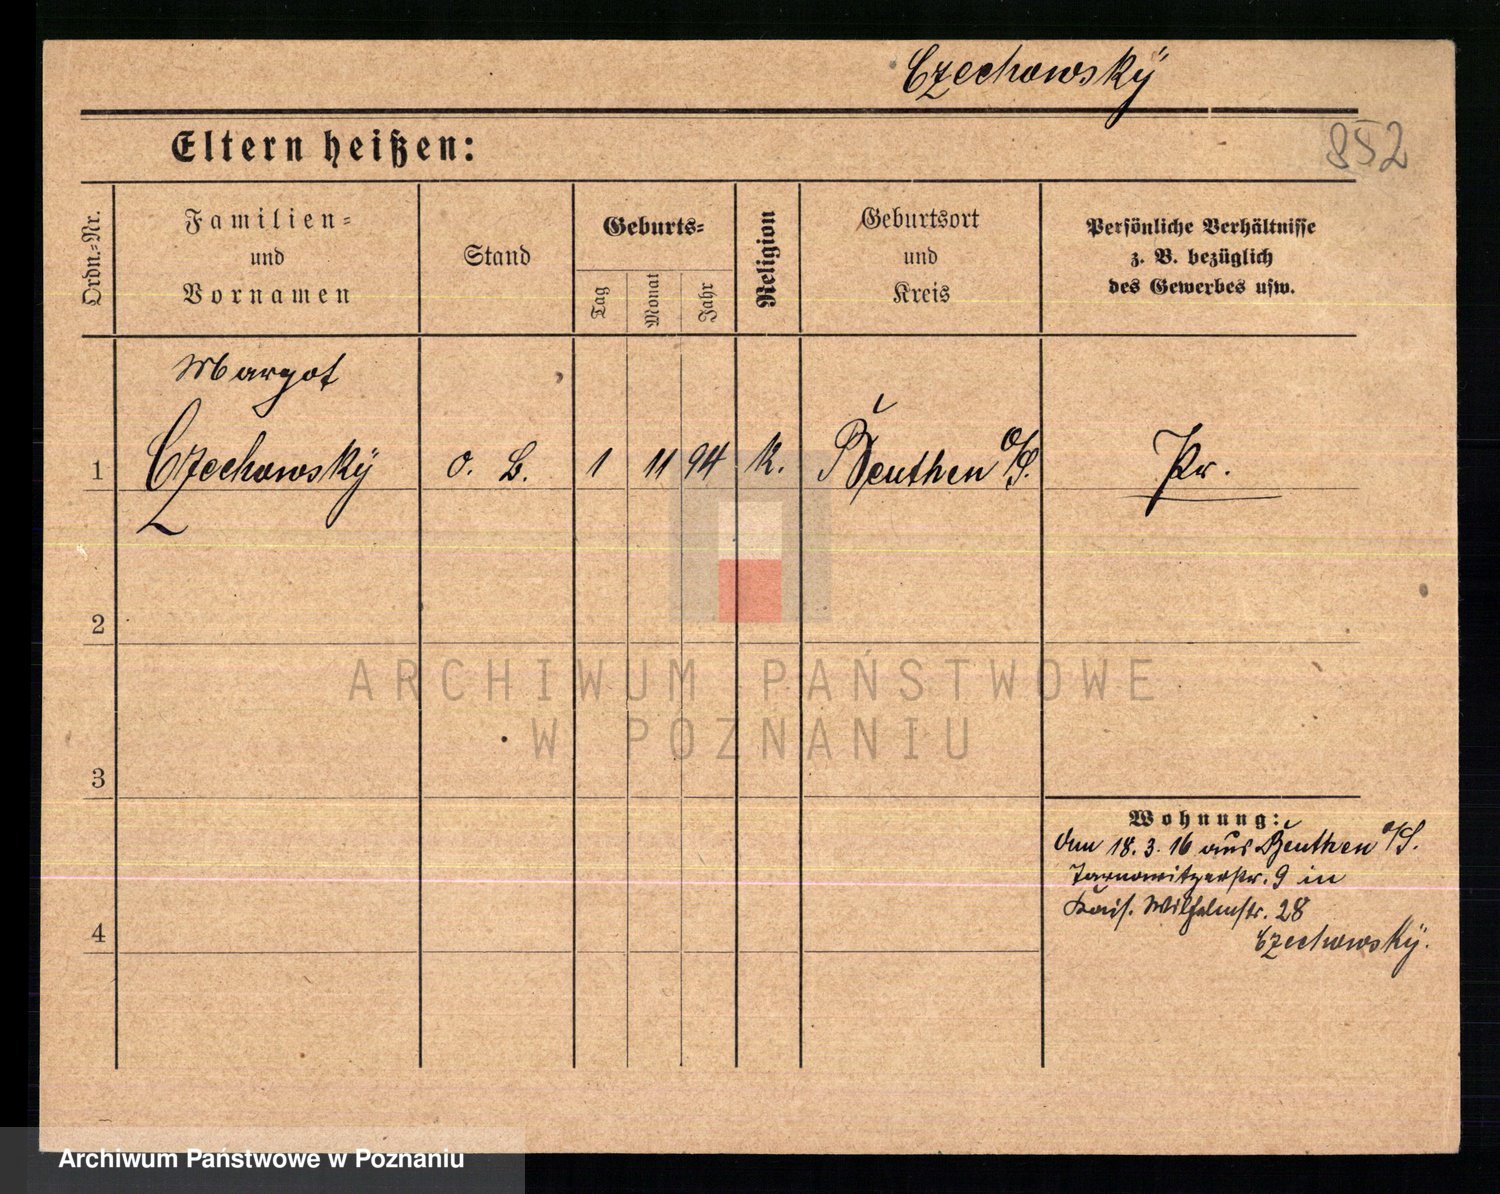 Czechowsky
Eltern heißen:
852
Ordn.-Nr.
Familien-
und
Vornamen
Stand
Geburts-
Tag
Monat
Jahr
Religion
Geburtsort
und
Kreis
Persönliche Verhältnisse
z. B. bezüglich
des Gewerbes usw.
Margot
1 Czechowskÿ o. B. 1 11 94 k. Beuthen O/S. Pr.
2
3
4
Wohnung:
18. 3. 16 aus Beuthen O/S.
Tarnowitzerstr. 9 in
Kais. Wilhelmstr. 28
Czechowskÿ.
ARCHIWUM PAŃSTWOWE
W POZNANIU
Archiwum Państwowe w Poznaniu